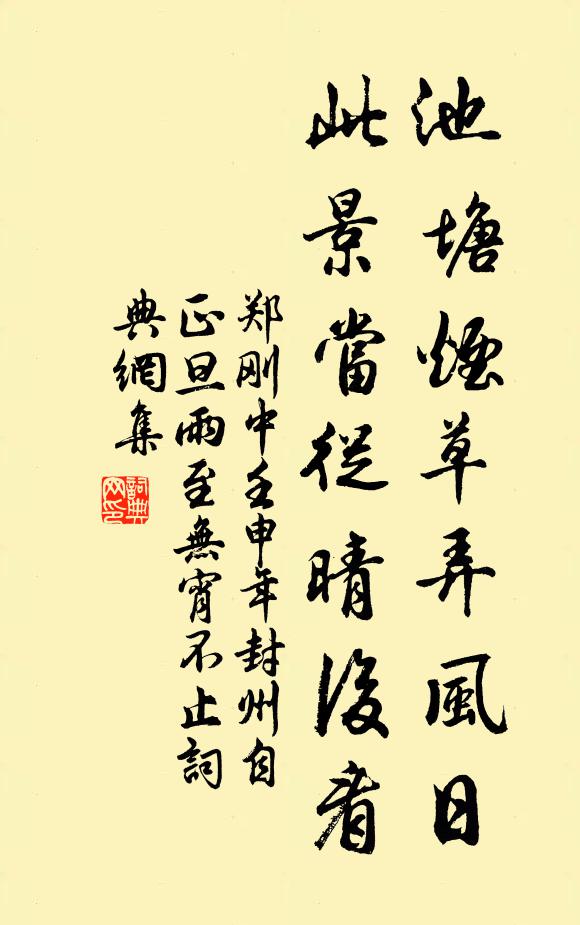 池塘煙草弄風日
此景當從晴後看
郑刚中壬申年封州自
正旦雨至無宵不止詞
典網集
詞典
网印